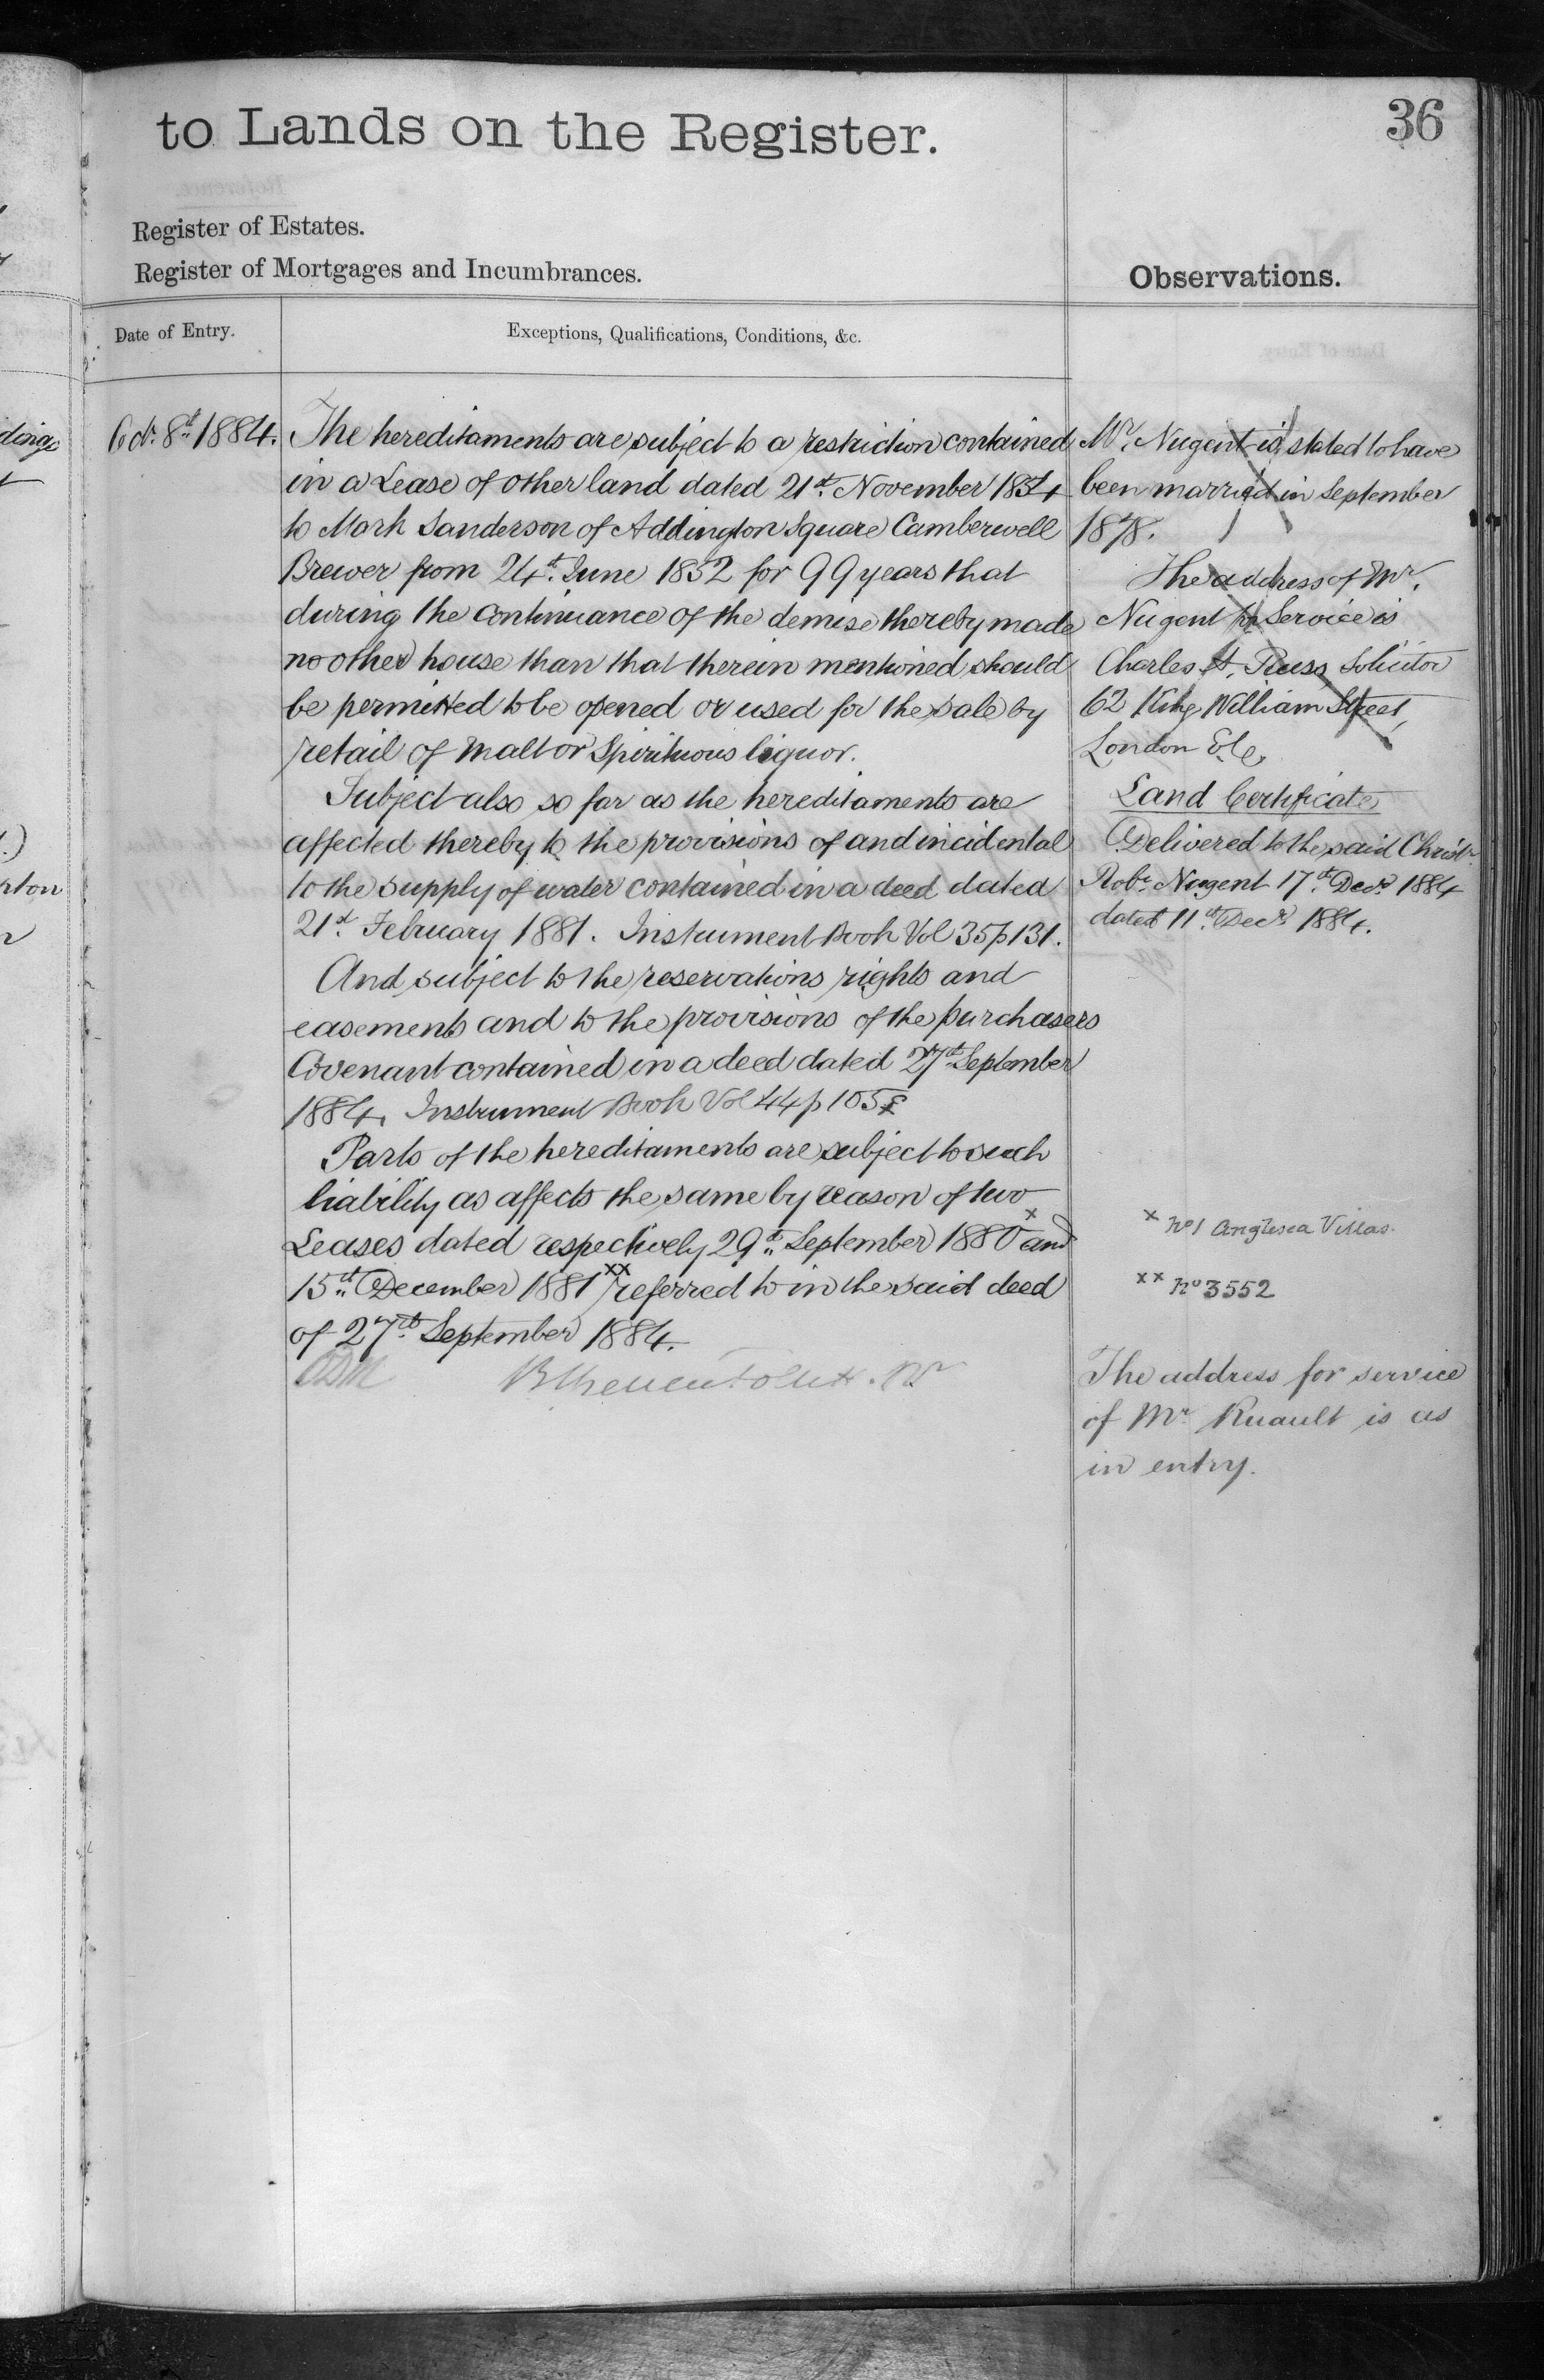 to Lands on the Register.
36
Register of Estates.
Register of Mortgages and Incumbrances.
Observations.
Date of Entry.
Exceptions, Qualifications, Conditions, &c.
Octr. 8th 1884.
The hereditaments are subject to a restriction contained
in a Lease of other land dated 21st. November
to Mark Sanderson of Addington Square Camberwell
Brewer from 24th. June 1852 for 99 years that
during the continuance of the demise thereby made
no other house than that therein mentioned should
be permitted to be opened or used for the sale by
retail of malt or Spirituous liquor.
Subject also so far as the hereditaments are
affected thereby to the provisions of and incidental
to the supply of water contained in a deed dated
21st. February 1881. Instrument Book Vol 35 p 131.
And subject to the reservations rights and
easements and to the provisions of the purchasers
Covenant contained in a deed dated 27th September
1884, Instrument Book Vol 44 p 105
Parts of the hereditaments are subject to such
liability as affects the same by reason of two
Leases dated respectively 29th September 1880 x and
15th December 1881 xx referred to in the said deed
of 27th September 1884.
Mr. Nugent is stated to have
been married in September
1878.
The address of Mr.
Nugent for Service is
Charles Russ Solicitor
62 King William Street,
London E.C.
Land Certificate
Delivered to the said Christr.
Robt. Nugent 17th Decr. 1884
dated 11th Decr. 1884.
x No 1 Anglesea Villas.
xx No 3552
The address for service
of Mr Ruault is as
in entry.